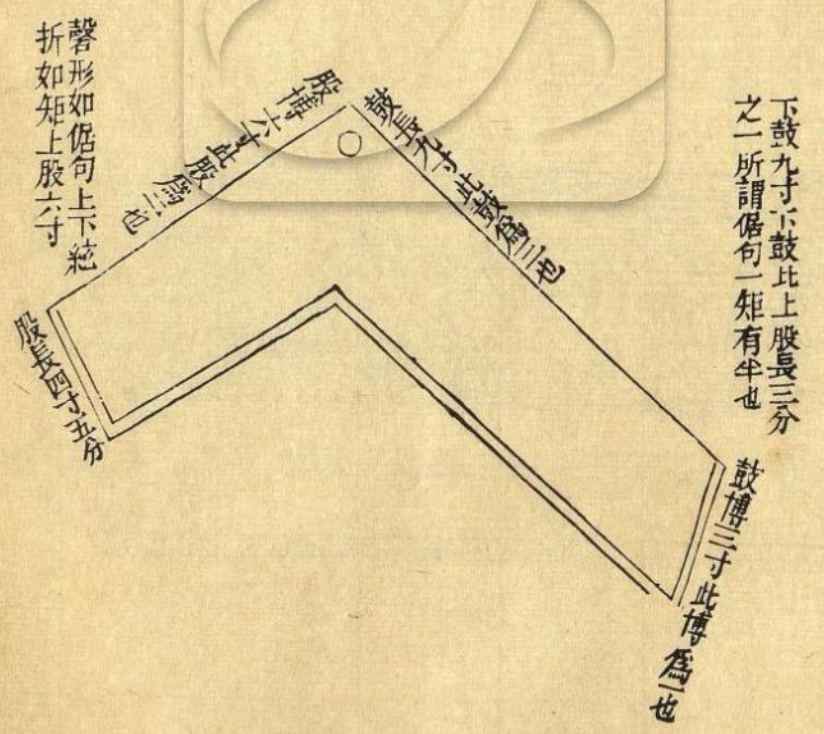 下鼓九寸下鼓比上股長三分
之一所謂倨句一矩有半也
鼓長九寸此鼓爲三也
股博六寸此股爲二也
鼓博三寸此博爲一也
股長四寸五分
磬形如倨句上下絃
折如矩上股六寸